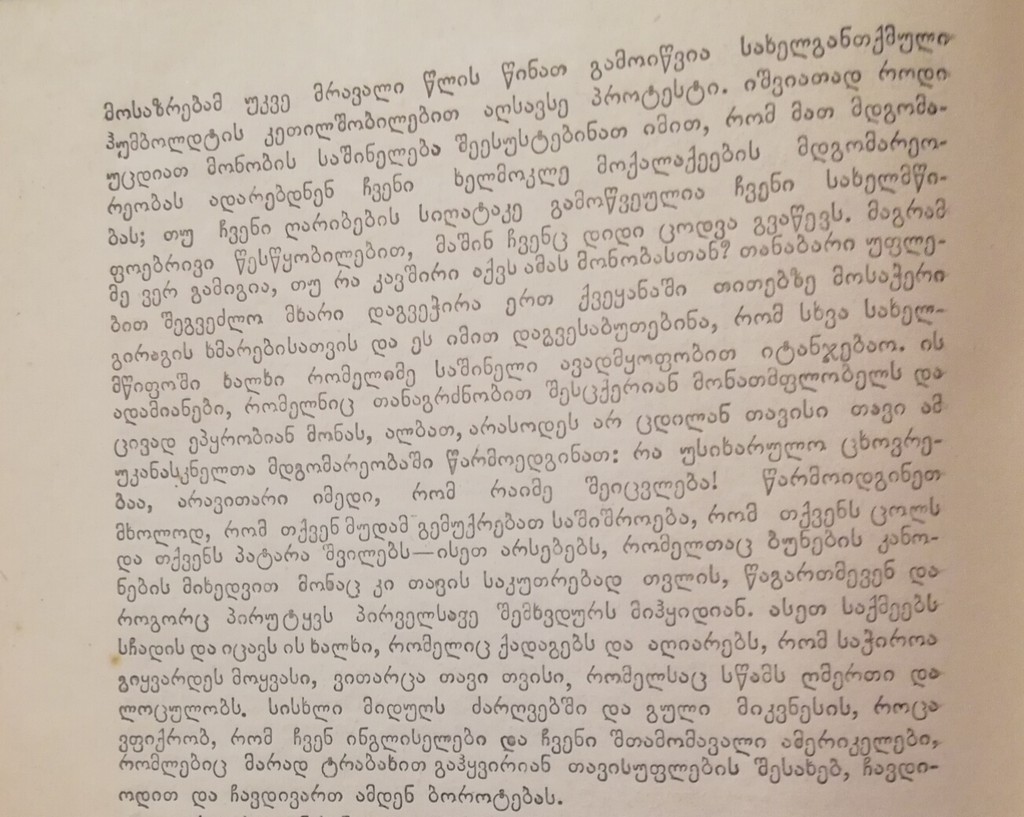 მოსაზრებამ უკვე მრავალი წლის წინათ გამოიწვია სახელგანთქმული
ჰუმბოლდტის კეთილშობილებით აღსავსე პროტესტი. იშვიათად როდი
უცდიათ მონობის საშინელება შეესუსტებინათ იმით, რომ მათ მდგომა-
რეობას ადარებდნენ ჩვენი ხელმოკლე მოქალაქეების მდგომარეო-
ბას; თუ ჩვენი ღარიბების სიღატაკე გამოწვეულია ჩვენი სახელმწი-
ფოებრივი წესწყობილებით, მაშინ ჩვენც დიდი ცოდვა გვაწევს. მაგრამ
მე ვერ გამიგია, თუ რა კავშირი აქვს ამას მონობასთან? თანაბარი უფლე-
ბით შეგვეძლო მხარი დაგვეჭირა ერთ ქვეყანაში თითებზე მოსაჭერი
გირაგის ხმარებისათვის და ეს იმით დაგვესაბუთებინა, რომ სხვა სახელ-
მწიფოში ხალხი რომელიმე საშინელი ავადმყოფობით იტანჯებაო. ის
ადამიანები, რომელნიც თანაგრძნობით შესცქერიან მონათმფლობელს და
ცივად ეპყრობიან მონას, ალბათ, არასოდეს არ ცდილან თავისი თავი ამ
უკანასკნელთა მდგომარეობაში წარმოედგინათ: რა უსიხარულო ცხოვრე-
ბაა, არავითარი იმედი, რომ რაიმე შეიცვლება! წარმოიდგინეთ
მხოლოდ, რომ თქვენ მუდამ გემუქრებათ საშიშროება, რომ თქვენს ცოლს
და თქვენს პატარა შვილებს—ისეთ არსებებს, რომელთაც ბუნების კანო-
ნების მიხედვით მონაც კი თავის საკუთრებად თვლის, წაგართმევენ და
როგორც პირუტყვს პირველსავე შემხვდურს მიჰყიდიან. ასეთ საქმეებს
სჩადის და იცავს ის ხალხი, რომელიც ქადაგებს და აღიარებს, რომ საჭიროა
გიყვარდეს მოყვასი, ვითარცა თავი თვისი, რომელსაც სწამს ღმერთი და
ლოცულობს. სისხლი მიდუღს ძარღვებში და გული მიკვნესის, როცა
ვფიქრობ, რომ ჩვენ ინგლისელები და ჩვენი შთამომავალი ამერიკელები,
რომლებიც მარად ტრაბახით გაჰყვირიან თავისუფლების შესახებ, ჩავდი-
ოდით და ჩავდივართ ამდენ ბოროტებას.